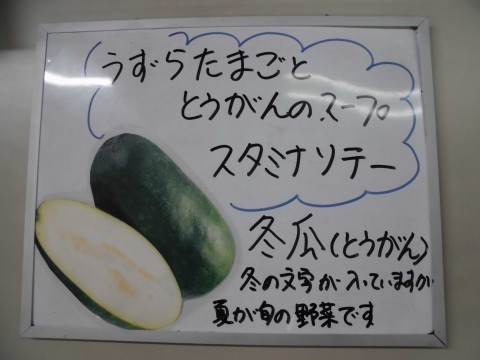 うずらたまごと
とうがんのスープ
スタミナソテー
冬瓜(とうがん)
冬の文字が入っていますが
夏が旬の野菜です